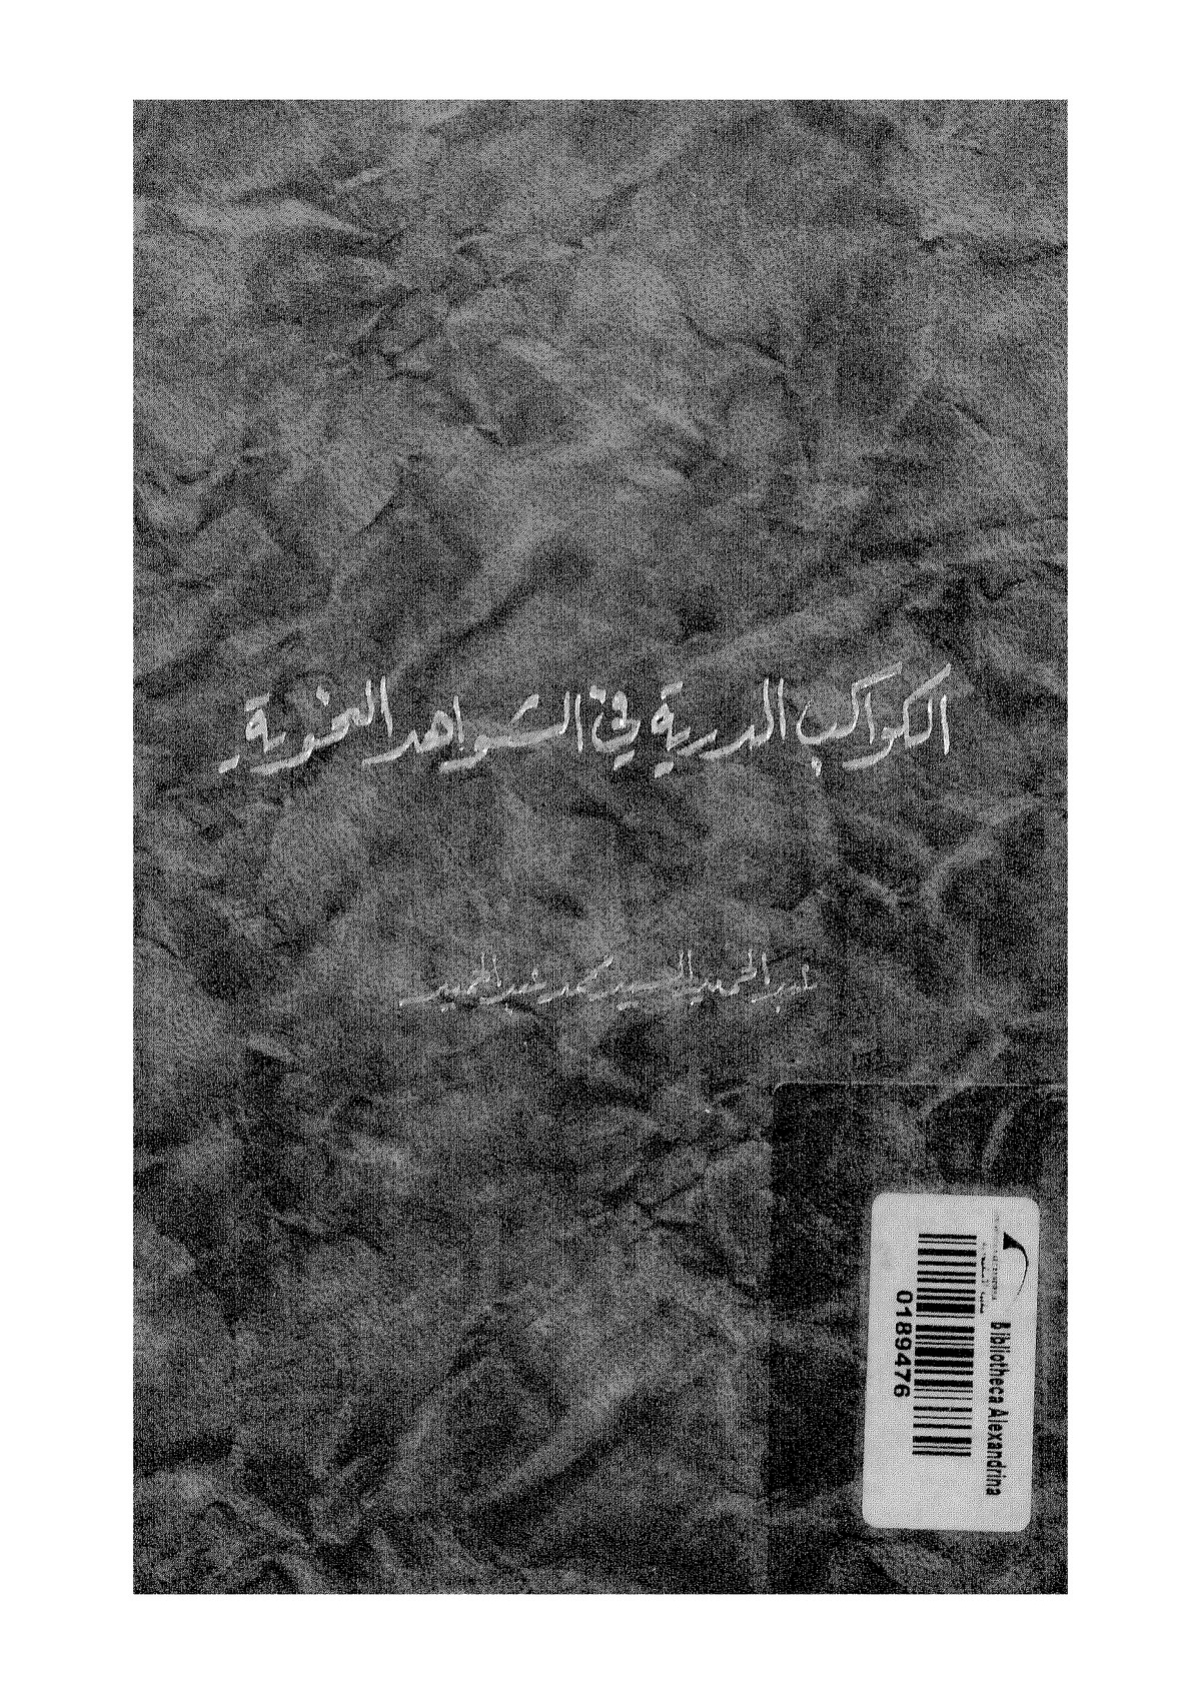 الكواكب الدرية في الشواهد النحوية
عبد الحميد السيد محمد عبد الحميد
Bibliotheca Alexandrina
0189476